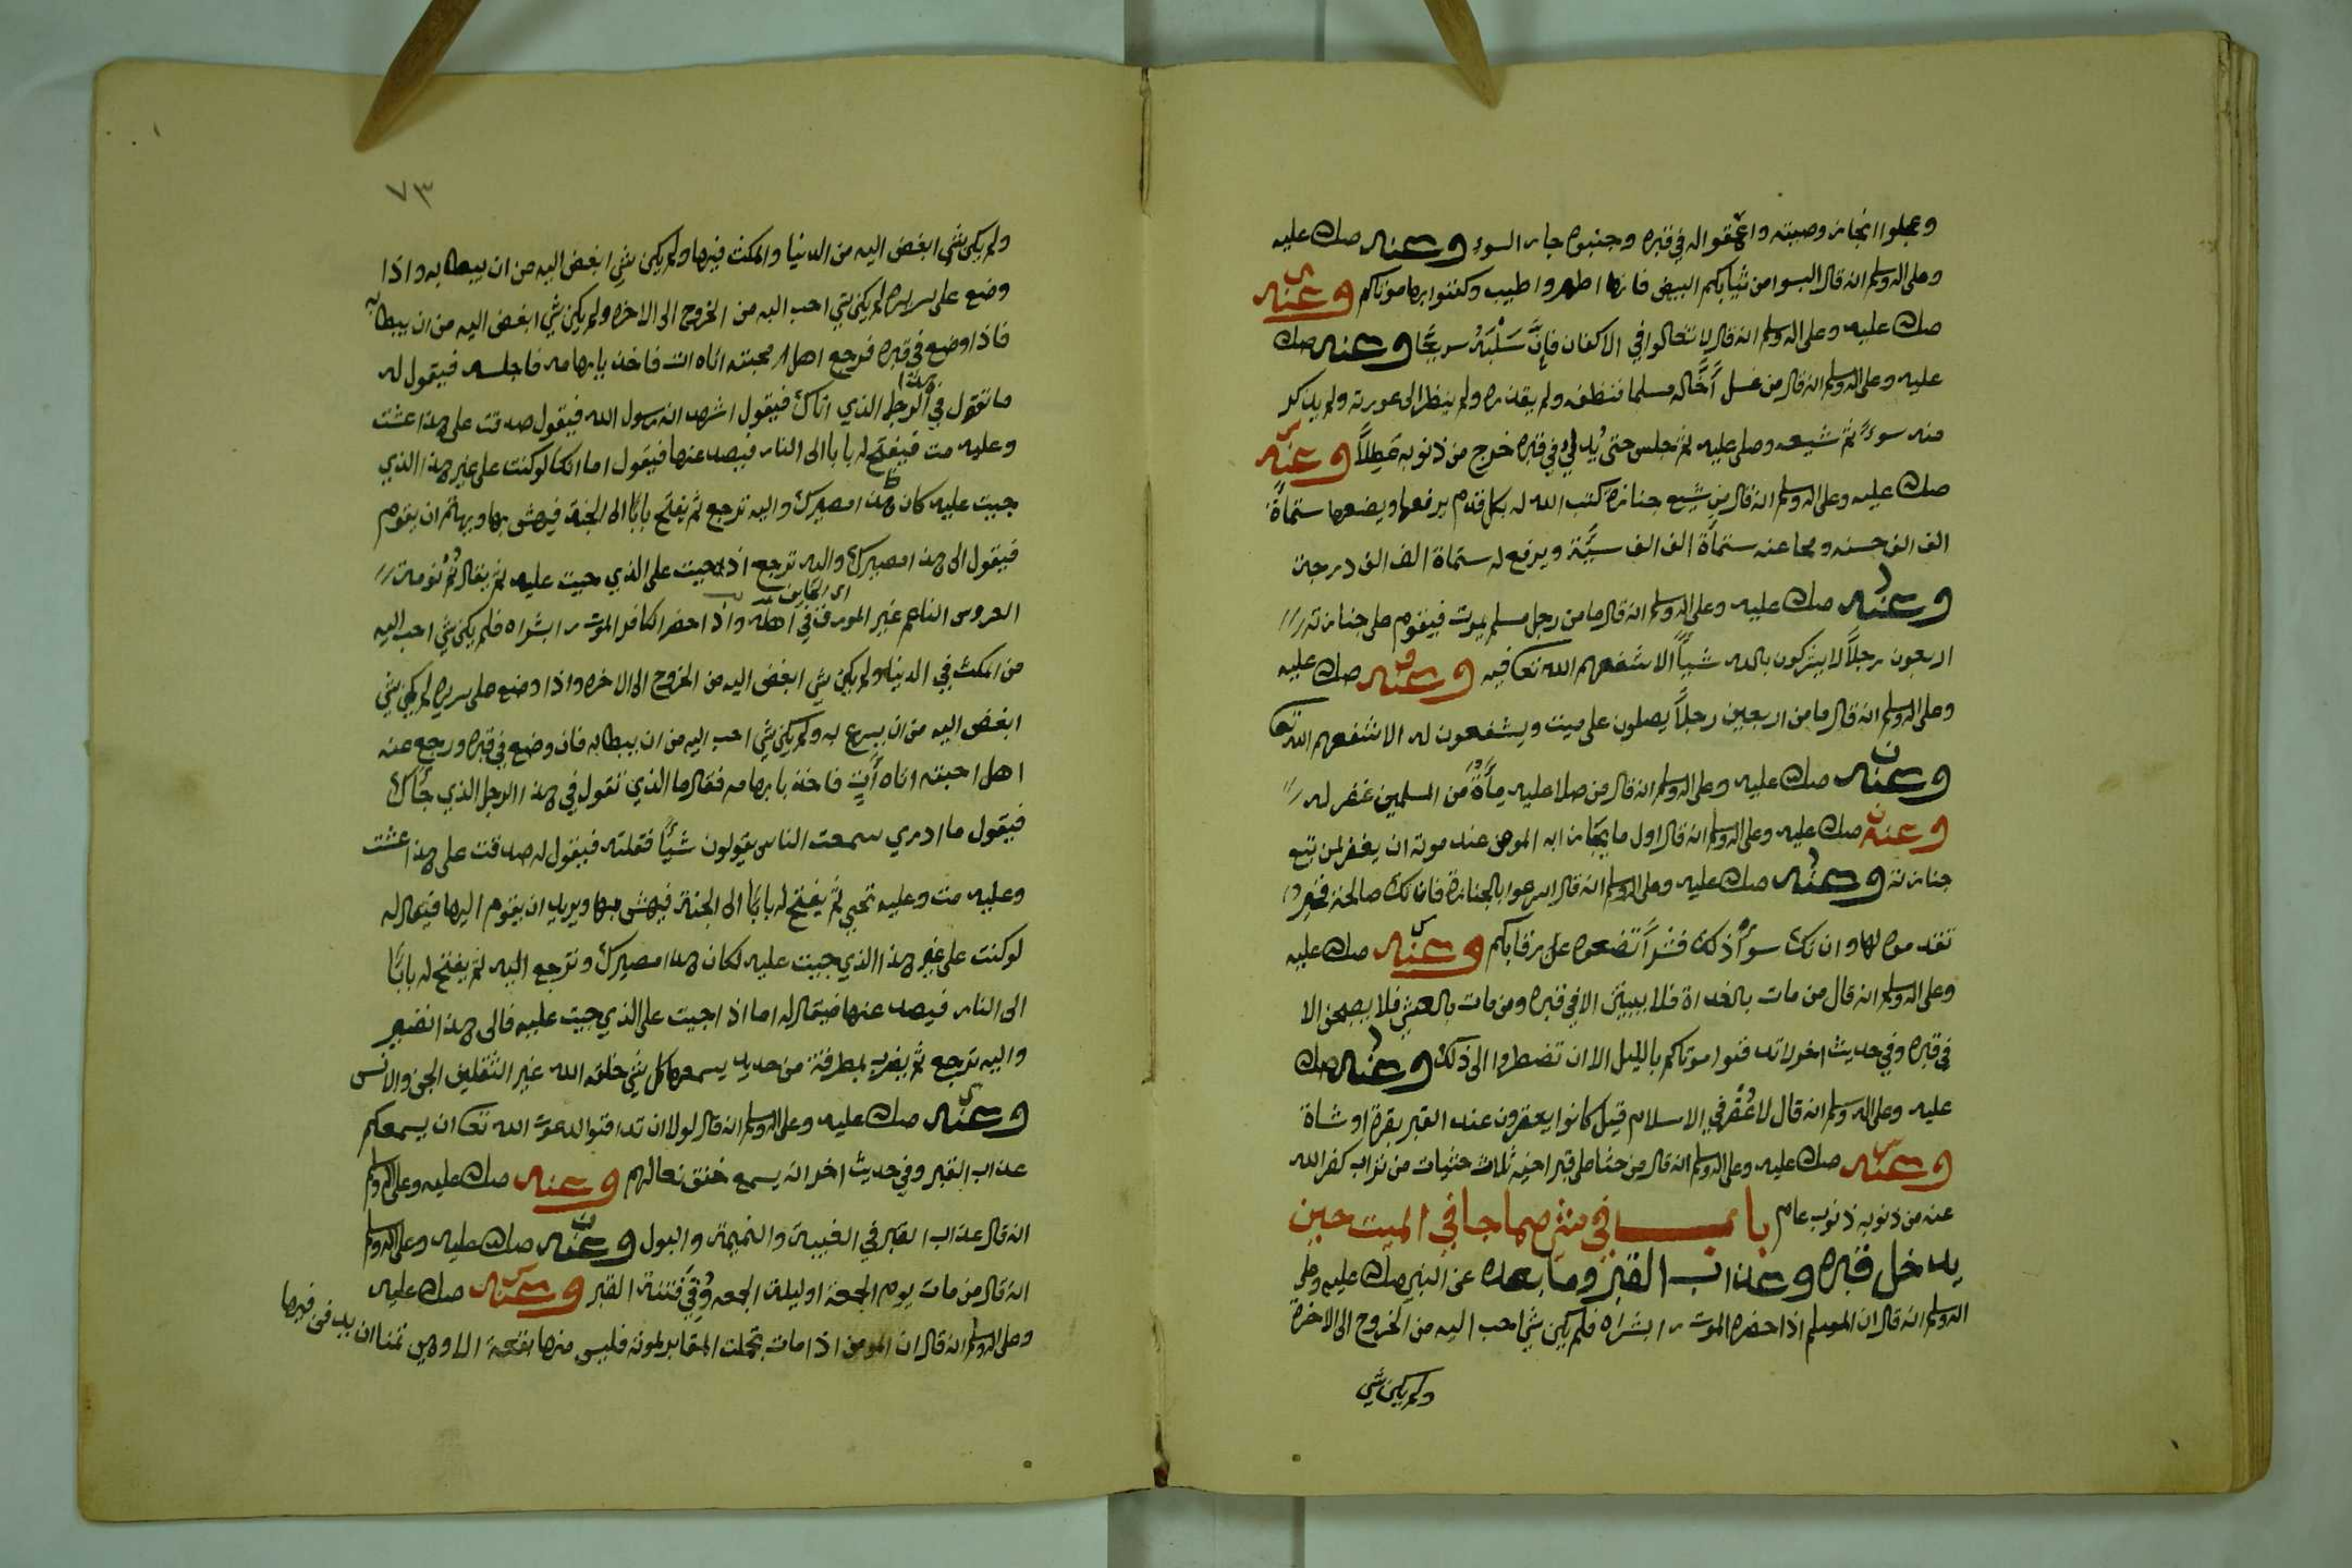 وعجلوا انجاز وصيته واعمقوا له في قبره وجنبوه جار السوء وعنه صلى الله عليه
وعلى اله وسلم انه قال البسوا من ثيابكم البيض فانها اطهر واطيب وكفنوا بها موتاكم وعنه
صلى الله عليه وعلى اله وسلم انه قال لا تغالوا في الاكفان فان سلبه سريعا وعنه صلى الله
عليه وعلى اله وسلم انه قال من غسل اخا له مسلما فنظفه ولم يقذره ولم ينظر الى عورته ولم يذكر
منه سوءً ثم شيعه وصلى عليه ثم جلس حتى يُدلي في قبره خرج من ذنوبه عَطِلاً وعنه
صلى الله عليه وعلى اله وسلم انه قال من شيع جنازة كتب الله له بكل قدم يرفعها ويضعها ستمأة
الف الف حسنه ومحا عنه ستمأة الف الف سيئة ويرفع له ستمأة الف الف درجة
وعنه صلى الله عليه وعلى اله وسلم انه قال ما من رجل مسلم يموت فيقوم على جنازته
اربعون رجلاً لا يشركون بالله شيأً الا شفعهم الله تعا فيه وعنه صلى الله عليه
وعلى اله وسلم انه قال ما من اربعين رجلاً يصلون على ميت ويشفعون له الا شفعهم الله تعا
وعنه صلى الله عليه وعلى اله وسلم انه قال من صلا عليه مأة من المسلمين غفر له
وعنه صلى الله عليه وعلى اله وسلم انه قال اول ما يجازا به المومن عند موته ان يغفر لمن تبع
جنازته وعنه صلى الله عليه وعلى اله وسلم انه قال اسرعوا بالجنازة فان تك صالحة فخير
تقدموه لها وان تك سوأ ذلك فشراً تضعوه على رقابكم وعنه صلى الله عليه
وعلى اله وسلم انه قال من مات بالغداة فلا يبيتن الا في قبره ومن مات بالعشي فلا يصبحن الا
في قبره وفي حديث اخر لا تدفنوا موتاكم بالليل الا ان تضطروا الى ذلك وعنه صلى الله
عليه وعلى اله وسلم انه قال لا عُقر في الاسلام قيل كانوا يعقرون عند القبر بقرة او شاة
وعنه صلى الله عليه وعلى اله وسلم انه قال من حثا على قبر اخيه ثلاث حثيات من تراب كفر الله
عنه من ذنوبه ذنوب عام باب في من صماجا في الميت حين
يدخل قبره وعذاب القبر وما بعده عن النبي صلى الله عليه وعلى
اله وسلم انه قال ان المسلم اذا حضره الموت را بشراه فلم يكن شي احب اليه من الخروج الى الاخرة
ولم يكن شي
٧٣
ولم يكن شي ابغض اليه من الدنيا والمكث فيها ولم يكن شي ابغض اليه من ان يبطا به واذا
وضع على سريره لم يكن شي احب اليه من الخروج الى الاخره ولم يكن شي ابغض اليه من ان يبطا به
فاذا وضع في قبره فرجع اهل محبته اتاه ات فاخذ بابهامه فاجلسه فيقول له
ما تقول في هذا الرجل الذي اتاك فيقول اشهد انه رسول الله فيقول صدقت على هذا عشت
وعليه مت فيفتح له بابا الى النار فيصد عنها فيقول اما انك لو كنت على غير هذا الذي
جيت عليه كان هذا مصيرك واليه ترجع ثم يفتح بابًا الى الجنة فيهش بها ويهاثم ان يقوم
فيقول الى هذا مصيرك واليه ترجع اذ جيت على الذي جيت عليه ثم يقال نُم نومة
العروس الناعم غير المورق في اهله واذا حضر الكافر الموت را بشراه فلم يكن شي احب اليه
من المكث في الدنيا ولم يكن شي ابغض اليه من الخروج الى الاخره واذا وضع على سريره لم يكن شي
ابغض اليه من ان يسرع به ولم يكن شي احب اليه من ان يبطا به فان وضع في قبره ورجع عنه
اهل احبته اتاه آتٍ فاخذ بابهامه فقال ما الذي تقول في هذا الرجل الذي جأك
فيقول ما ادري سمعت الناس يقولون شيأً فقلته فيقول له صدقت على هذا عشت
وعليه مت وعليه تحيي ثم يفتح له بابًا الى الجنة فيهش بها ويريد ان يقوم اليها فيقال له
لو كنت على غير هذا الذي جيت عليه لكان هذا مصيرك وترجع اليه ثم يفتح له بابًا
الى النار فيصد عنها فيقال له اما اذ جيت على الذي جيت عليه فالى هذا تصير
واليه ترجع ثم يضرب بمطرقة من حديد يسمعها كل شي خلقه الله غير الثقلين الجن والانس
وعنه صلى الله عليه وعلى اله وسلم انه قال لولا ان تدافنوا لدعوت الله تعا ان يسمعكم
عذاب القبر وفي حديث اخر انه يسمع خفق نعالهم وعنه صلى الله عليه وعلى اله وسلم
انه قال عذاب القبر في الغيبة والنميمة والبول وعنه صلى الله عليه وعلى اله وسلم
انه قال من مات يوم الجمعة او ليلة الجمعه وُقي فتنة القبر وعنه صلى الله عليه
وعلى اله وسلم انه قال ان المومن اذا مات تجملت المقابر لموته فليس منها بقعة الا وهي تمنا ان يدفن فيها